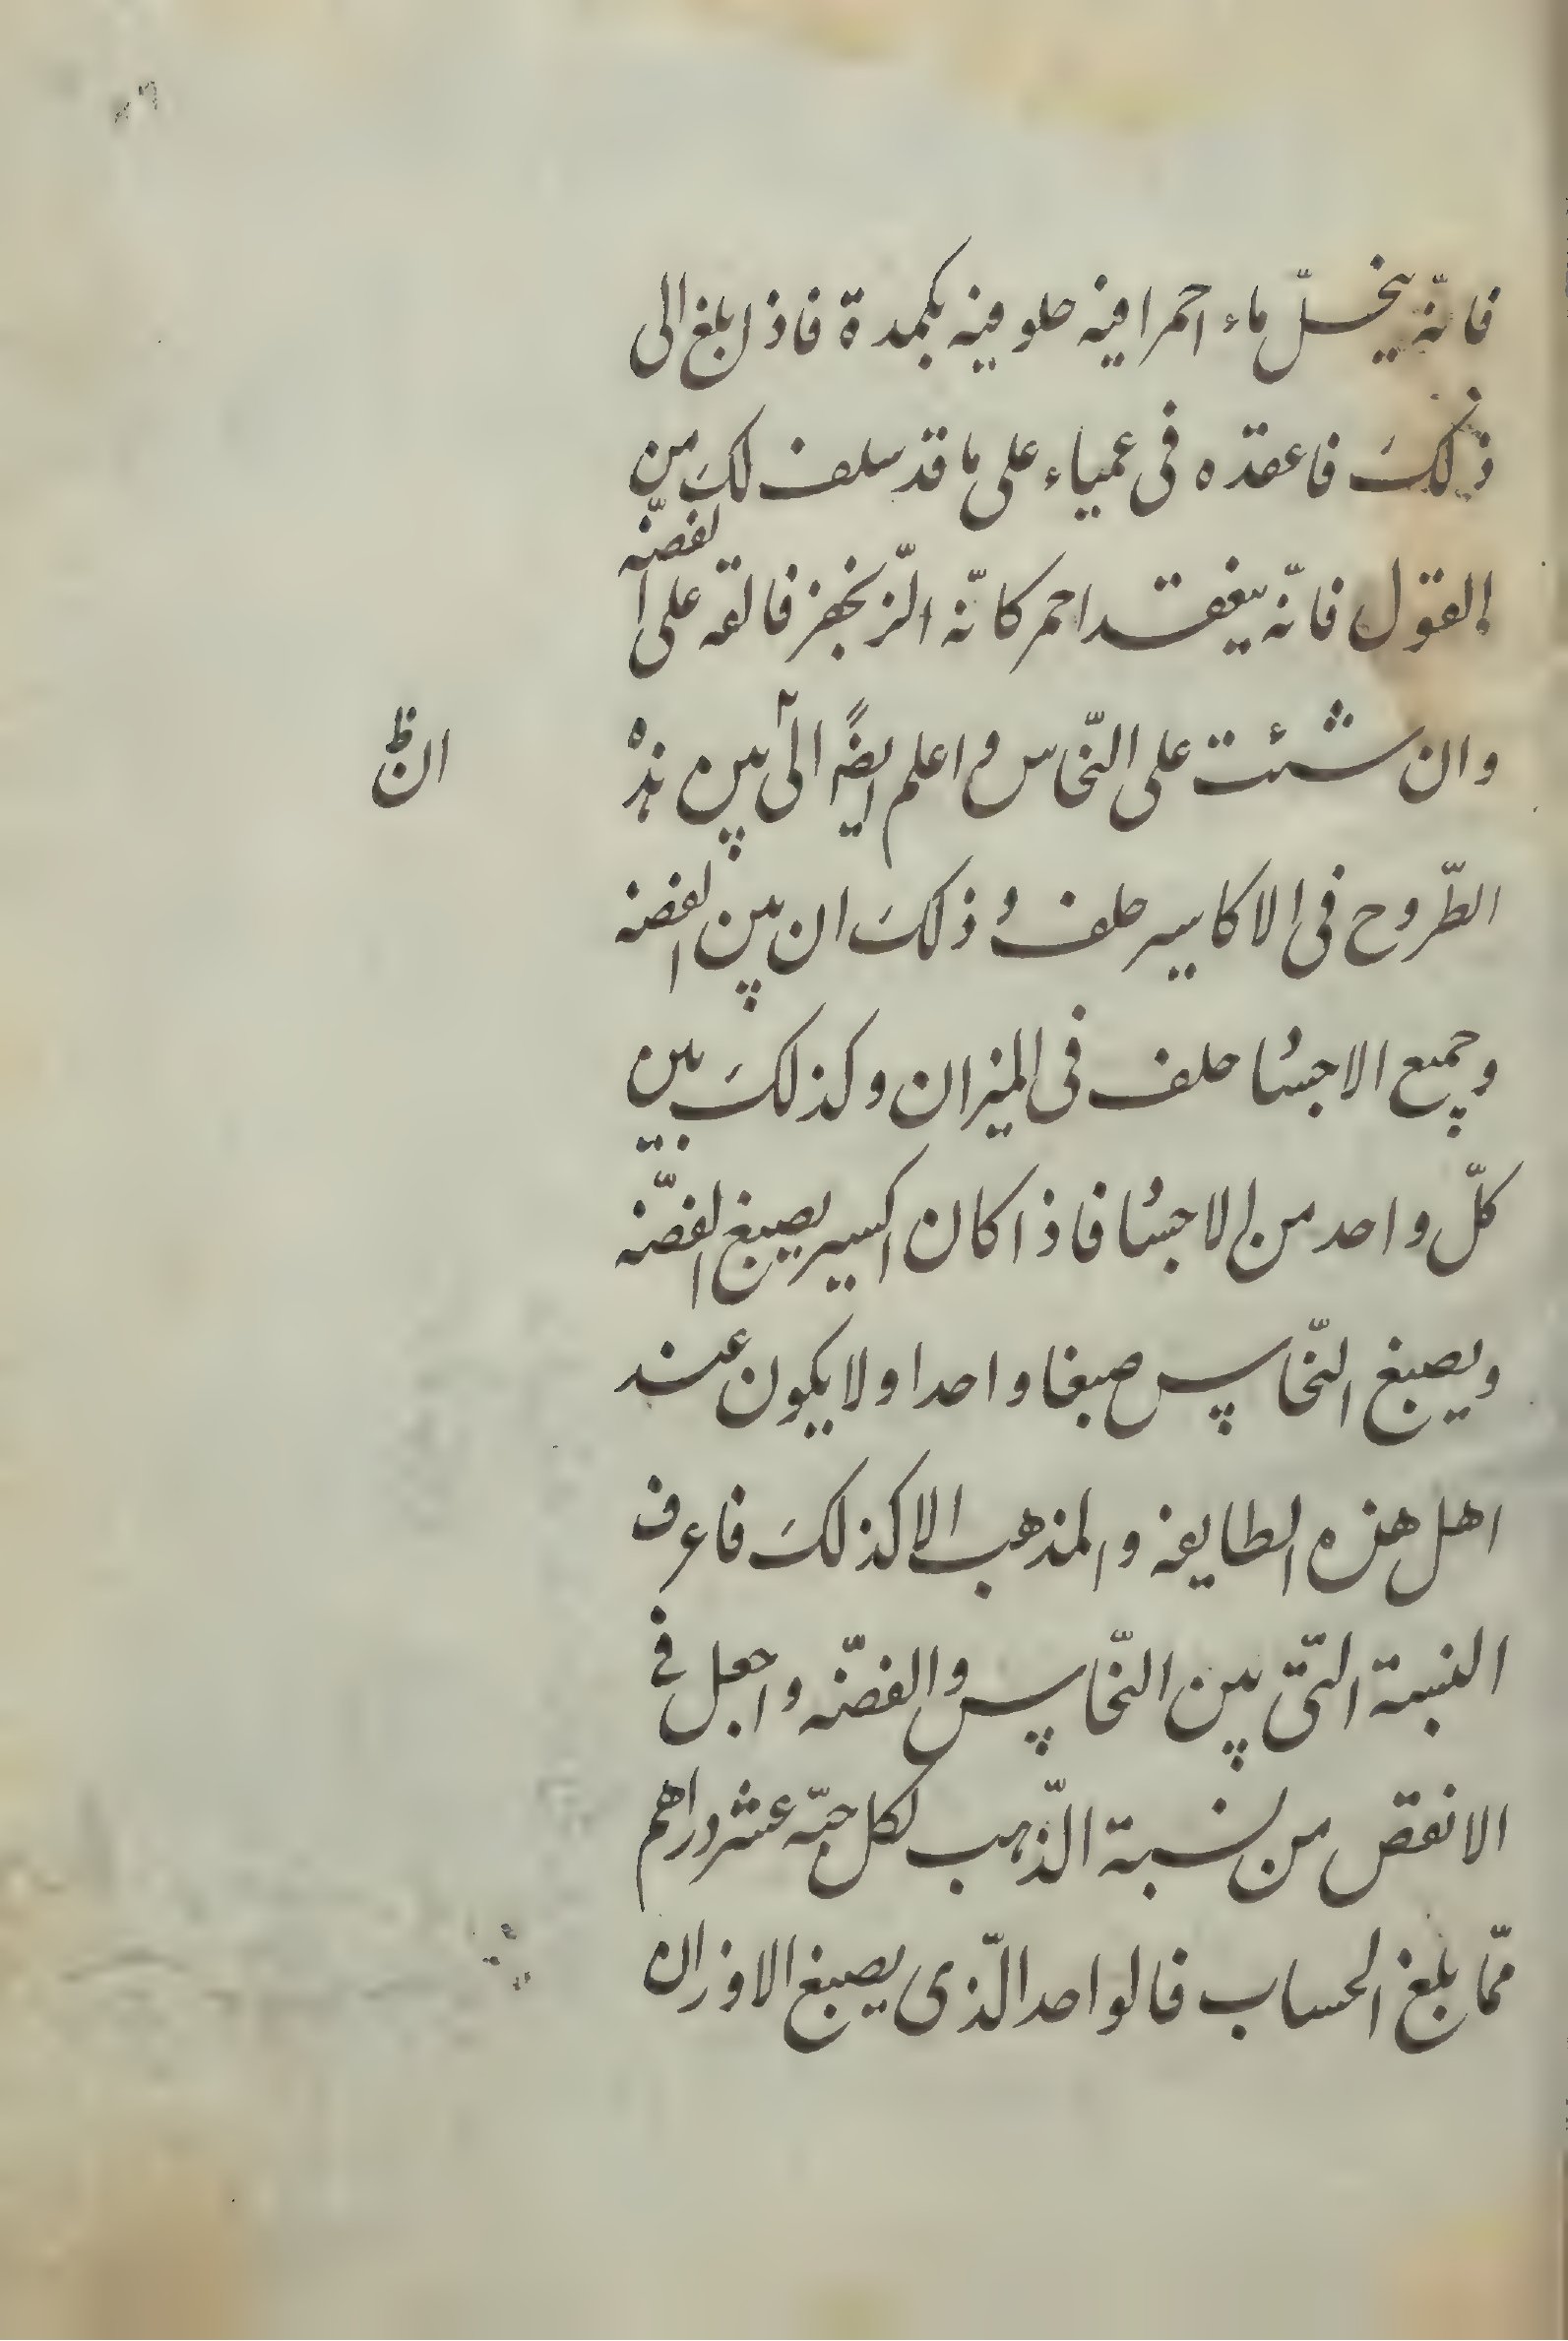 فانّه ينحلّ ماء احمرا فيه حلو فيه بكمدة فاذا بلغ الى
ذلك فاعقده فى عمياء على ما قد سلف لك من
القول فانّه ينعقد احمر كانّه الزنجفر فالقه على الفضّه
وان شئت على النّحاس و اعلم ايضًا بين هذه
الطّروح فى الاكاسير خلف و ذلك ان بين الفضه
وجميع الاجسا خلف فى الميزان وكذلك بين
كلّ واحد من الاجسا فاذا كان اكسير يصبغ الفضّه
ويصبغ النّحاس صبغا واحدا ولا يكون عند
اهل هذه الطايفه والمذهب الا كذلك فاعرف
النسبة الّتى بين النّحاس والفضّه واجعل فى
الانقص من نسبة الذّهب لكل حبّه عشر دراهم
ممّا بلغ الحساب فالواحد الّذى يصبغ الاوزان